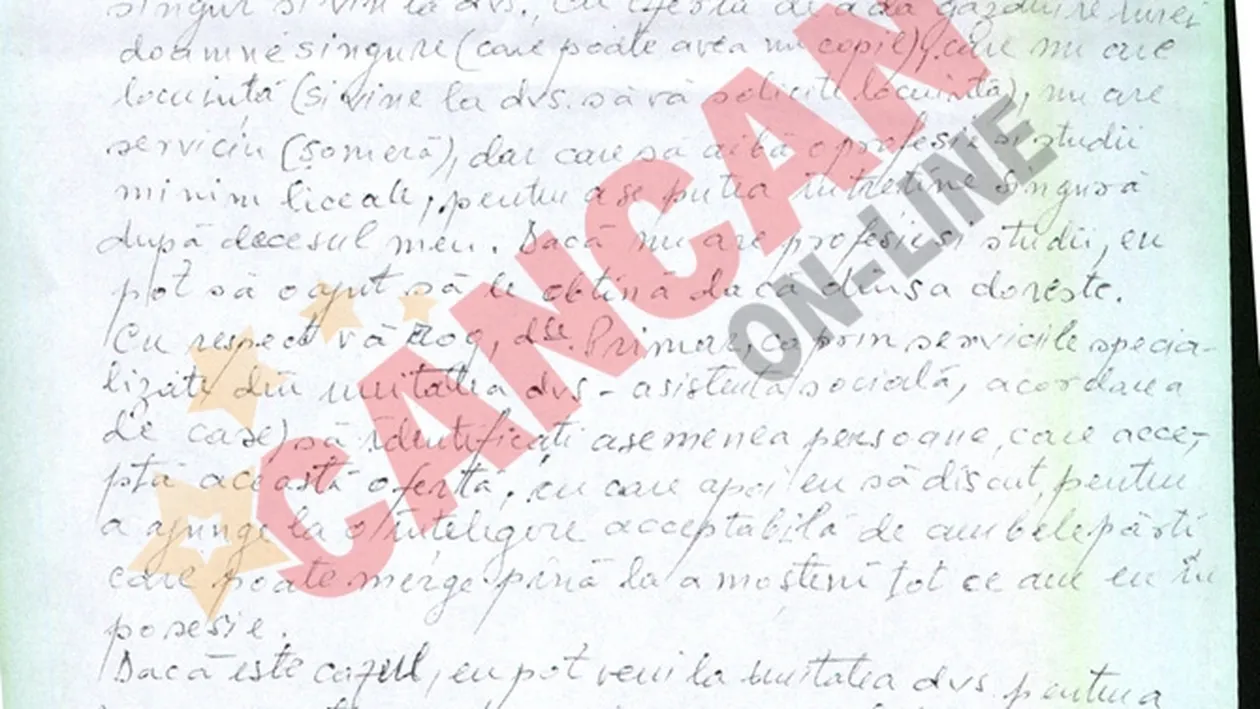 singur și vin la dvs., cu oferta de a da găzduire unei
doamne singure (care poate avea un copil), care nu are
locuință (și vine la dvs. să vă solicite locuință), nu are
serviciu (șomeră), dar care să aibă o profesie și studii
minim liceale, pentru a se putea întreține singură
după decesul meu. Dacă nu are profesie și studii, eu
pot să o ajut să le obțină dacă dînsa dorește.
Cu respect vă rog, dle. Primar, ca prin serviciile specia-
lizate din unitatea dvs - asistență socială, acordarea
de case) să identificați asemenea persoane, care acce-
ptă această ofertă, cu care apoi eu să discut, pentru
a ajunge la o înțelegere acceptabilă de ambele părți
care poate merge pînă la a moșteni tot ce am eu în
posesie.
Dacă este cazul, eu pot veni la unitatea dvs. pentru a
CANCAN
ON-LINE